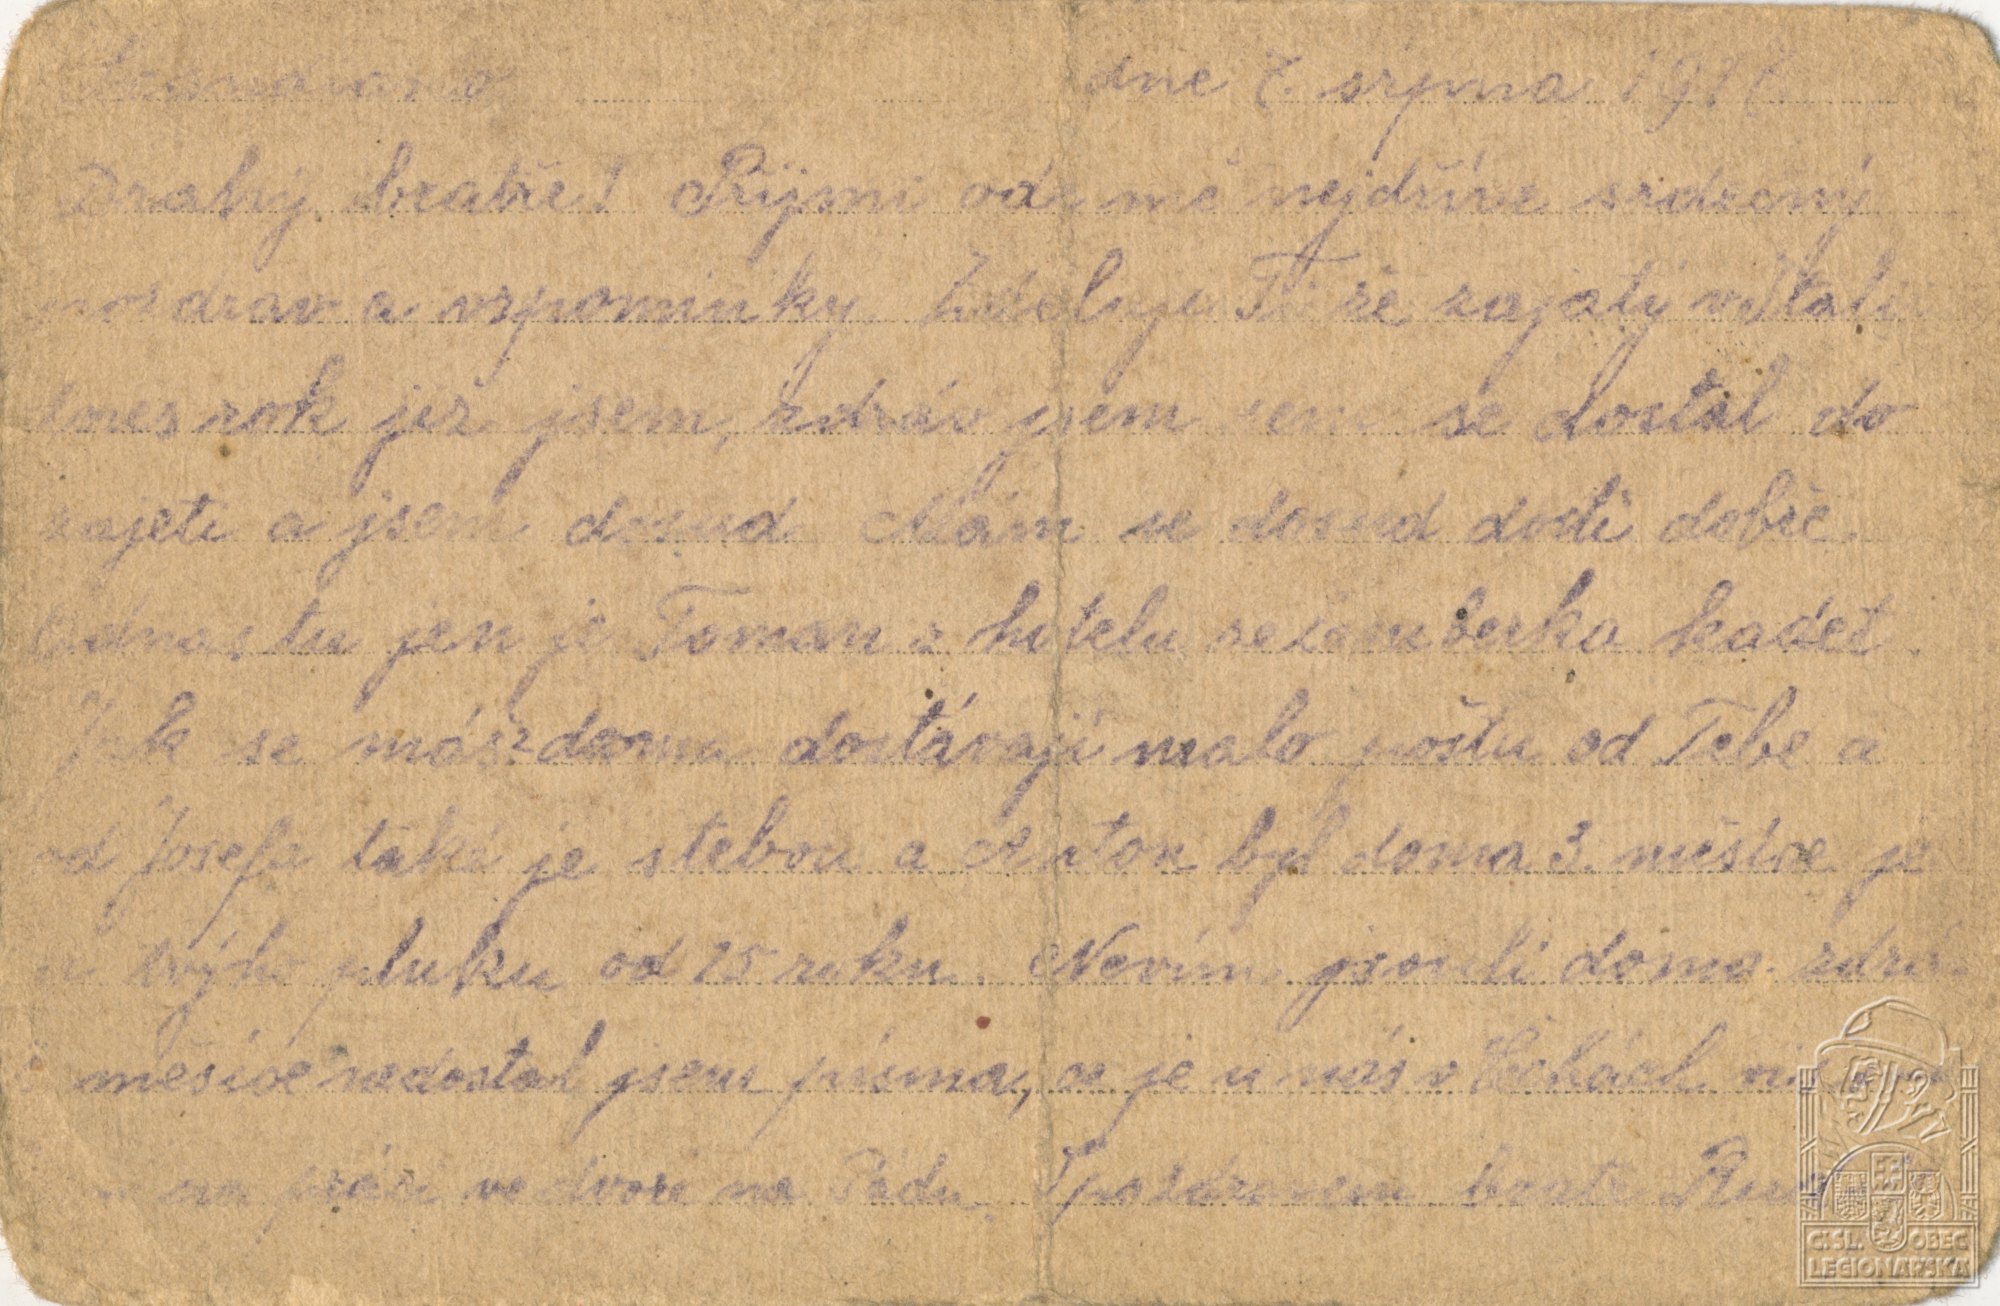 dne 7. srpna 1917.
Drahý bratře! Přijmi ode mě nejdříve srdečný
pozdrav a vzpomínky. Zděluji Ti že zajatý v Italii
dnes rok již jsem, zdráv jsem se dostal do
zajetí a jsem dosud. Mám se dosud dosti dobře.
tu jen je Toman z hotelu ze Žamberka kadet.
Jak se máš z doma dostávají malo poštu od Tebe a
od Josefa také je s tebou a byl doma 3. měsíce je
u pluku od 15 roku. Nevím jsouli doma zdrá
měsíce nedostal jsem písma, co je u nás v Čechách
na práci ve dvoře na Pádu. S pozdravem bratr
C. SL. OBEC
LEGIONÁŘSKÁ